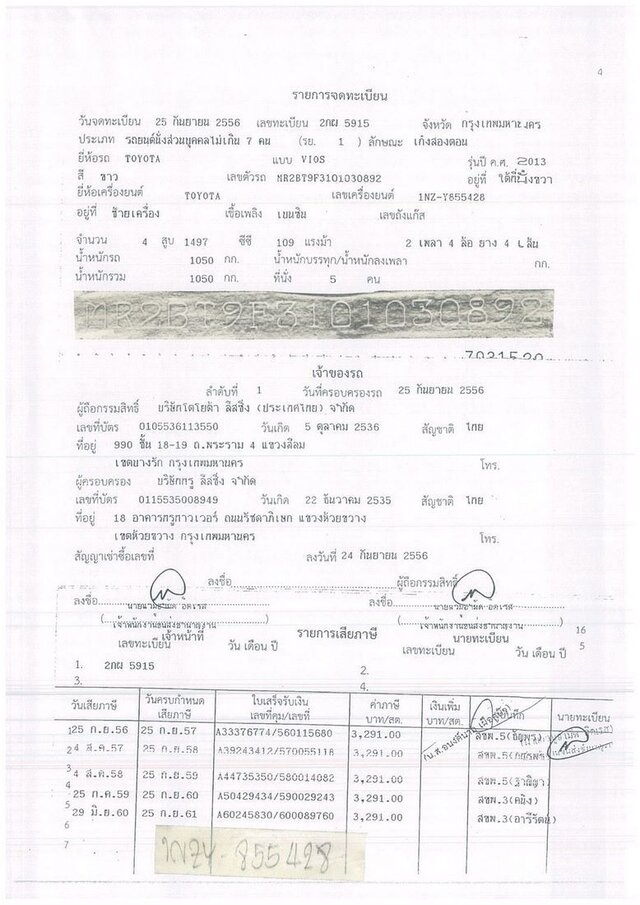 4
รายการจดทะเบียน
วันจดทะเบียน 25 กันยายน 2556 เลขทะเบียน 2กผ 5915 จังหวัด กรุงเทพมหานคร
ประเภท รถยนต์นั่งส่วนบุคคลไม่เกิน 7 คน (รย. 1 ) ลักษณะ เก๋งสองตอน
ยี่ห้อรถ TOYOTA แบบ VIOS รุ่นปี ค.ศ. 2013
สี ขาว เลขตัวรถ MR2BT9F3101030892 อยู่ที่ ใต้ที่นั่งขวา
ยี่ห้อเครื่องยนต์ TOYOTA เลขเครื่องยนต์ 1NZ-Y855428
อยู่ที่ ซ้ายเครื่อง เชื้อเพลิง เบนซิน เลขถังแก๊ส
จำนวน 4 สูบ 1497 ซีซี 109 แรงม้า 2 เพลา 4 ล้อ ยาง 4 เส้น
น้ำหนักรถ 1050 กก. น้ำหนักบรรทุก/น้ำหนักลงเพลา กก.
น้ำหนักรวม 1050 กก. ที่นั่ง 5 คน
MR2BT9F3101030892
เจ้าของรถ
ลำดับที่ 1 วันที่ครอบครองรถ 25 กันยายน 2556
ผู้ถือกรรมสิทธิ์ บริษัทโตโยต้า ลีสซิ่ง (ประเทศไทย) จำกัด
เลขที่บัตร 0105536113550 วันเกิด 5 ตุลาคม 2536 สัญชาติ ไทย
ที่อยู่ 990 ชั้น 18-19 ถ.พระราม 4 แขวงสีลม
เขตบางรัก กรุงเทพมหานคร โทร.
ผู้ครอบครอง บริษัทกรุ ลีสซิ่ง จำกัด
เลขที่บัตร 0115535008949 วันเกิด 22 ธันวาคม 2535 สัญชาติ ไทย
ที่อยู่ 18 อาคารกรูทาวเวอร์ ถนนรัชดาภิเษก แขวงห้วยขวาง
เขตห้วยขวาง กรุงเทพมหานคร โทร.
สัญญาเช่าซื้อเลขที่ ลงวันที่ 24 กันยายน 2556
ลงชื่อ ผู้ถือกรรมสิทธิ์
ลงชื่อ ลงชื่อ
เจ้าหน้าที่ รายการเสียภาษี นายทะเบียน 16
เลขทะเบียน วัน เดือน ปี เลขทะเบียน วัน เดือน ปี 5
1. 2กผ 5915 2.
3. 4.
วันเสียภาษี วันครบกำหนดเสียภาษี ใบเสร็จรับเงิน เลขที่คุม/เลขที่ ค่าภาษี บาท/สต. เงินเพิ่ม บาท/สต. นายทะเบียน
1 25 ก.ย.56 25 ก.ย.57 A33376774/560115680 3,291.00 สขพ.5
2 4 ส.ค.57 25 ก.ย.58 A39243412/570055118 3,291.00 สขพ.5
3 4 ส.ค.58 25 ก.ย.59 A44735350/580014082 3,291.00 สขพ.5
4 25 ก.ค.59 25 ก.ย.60 A50429434/590029243 3,291.00 สขพ.3
5 29 มิ.ย.60 25 ก.ย.61 A60245830/600089760 3,291.00 สขพ.3
6
7
1NZY-855428